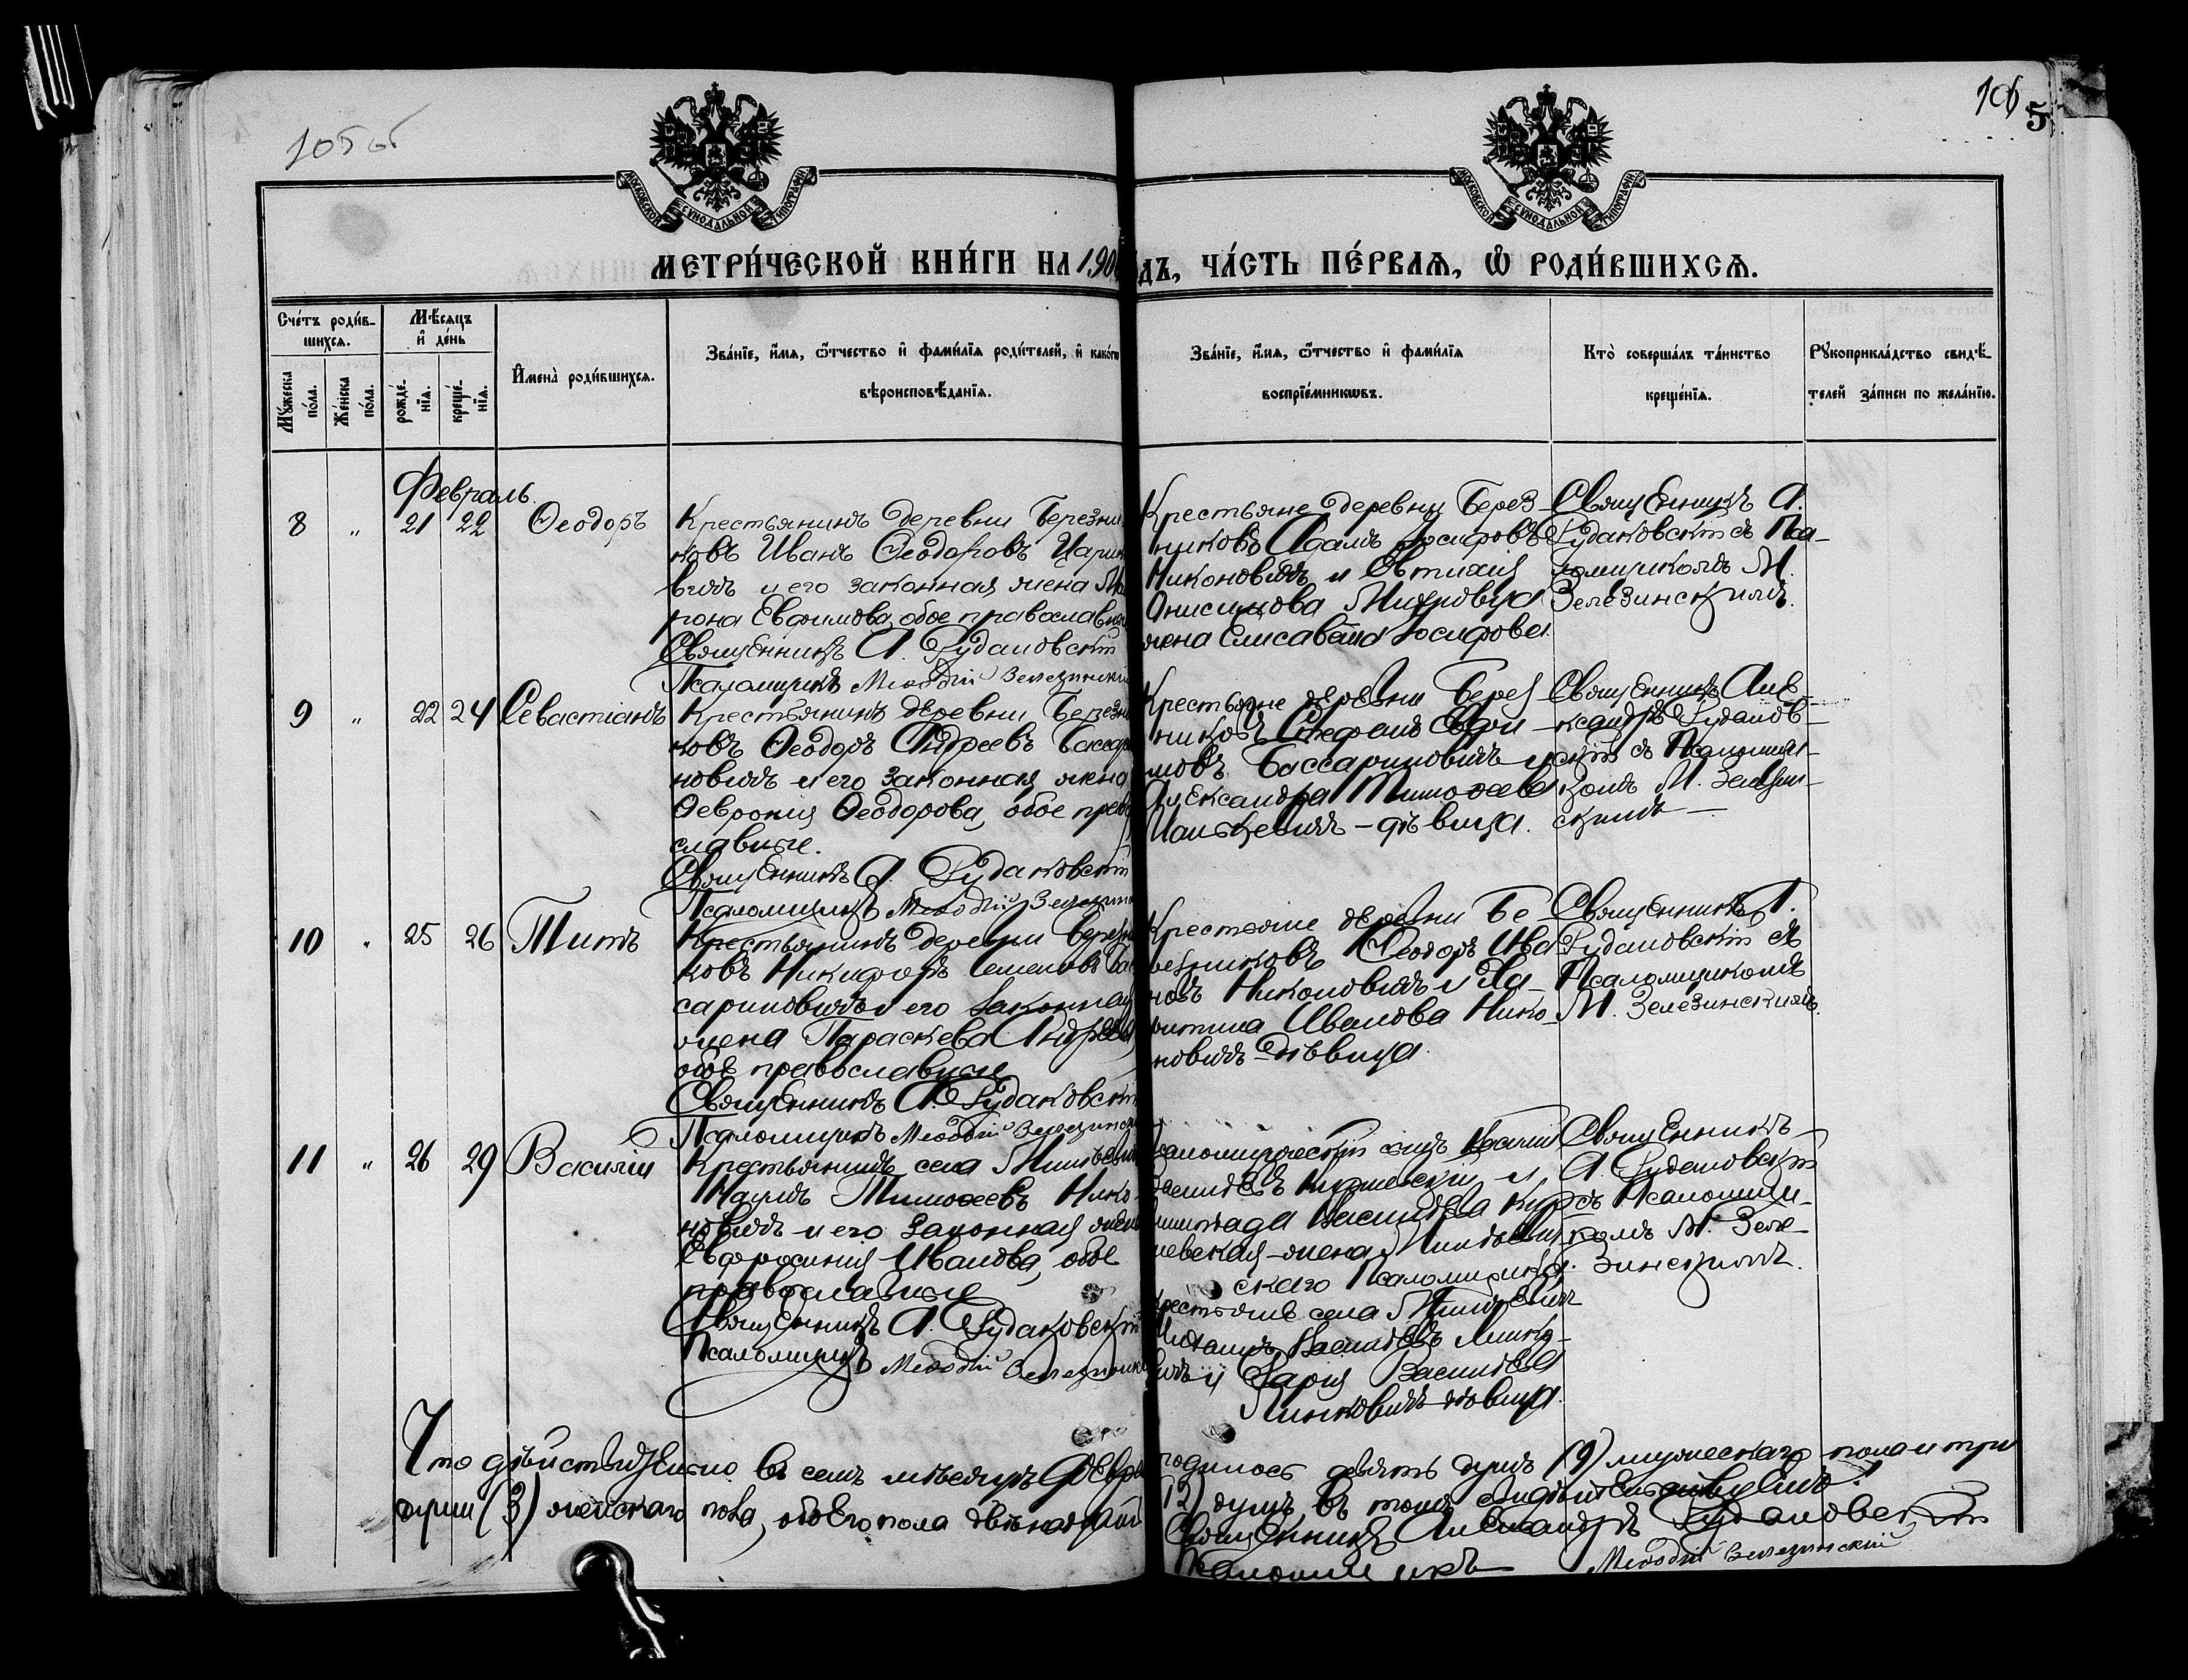 105 об
106
5
МОСКОВСКОЙ СѴНОДАЛЬНОЙ ТИПОГРАФІИ
МОСКОВСКОЙ СѴНОДАЛЬНОЙ ТИПОГРАФІИ
МЕТРИ́ЧЕСКОЙ КНИ́ГИ НА 190 ДЪ, ЧА́СТЬ ПЕ́РВАѦ, Ѽ РОДИ́ВШИХСѦ.
Сче́тъ роди́в-
шихсѧ.
Мѣ́сѧцъ
и҆ де́нь
Мꙋ́жеска
по́ла.
Же́нска
по́ла.
рожде́-
нїѧ.
креще́-
нїѧ.
И҆мена̀ роди́вшихсѧ.
Зва́нїе, и҆́мѧ, ѻ҆́тчество и҆ фами́лїѧ роди́телей, и҆ како́гѡ
вѣроисповѣ́данїѧ.
Зва́нїе, и҆́мѧ, ѻ҆́тчество и҆ фами́лїѧ
воспрїе́мникѡвъ.
Кто̀ соверша́лъ та́инство
креще́нїѧ.
Рꙋкоприкла́дство свидѣ́-
телей за́писи по жела́нїю.
Февраль.
8 " 21 22 Ѳеодоръ
Крестьянинъ деревни Березни
ковъ Иванъ Ѳеодоровъ
вичъ и его законная жена
рона Евфимова, обое православн
Священникъ А. Рудаковскій
Псаломщикъ Меѳодій Зелезинскій
Крестьяне деревни Берез
никовъ Адамъ Іосифовъ
Никоновичъ и Евтихія
Онисимова
жена Елисавета Іосифова.
Священникъ А.
Рудаковскій съ Пса-
ломщикомъ М.
Зелезинскимъ.
9 " 22 24 Севастіанъ
Крестьянинъ деревни Березни
ковъ Ѳеодоръ Андреевъ Бассари
новичъ и его законная жена
Ѳевронія Ѳеодорова, обое право
славные.
Священникъ А. Рудаковскій
Псаломщикъ Меѳодій Зелезинс
Крестьяне деревни Берез
никовъ Стефанъ
мовъ Бассариновичъ и
Александра Тимоѳеева
дѣвица.
Священникъ Але-
ксандръ Рудаков-
скій съ Псаломщи-
комъ М. Зелезин-
скимъ
10 " 25 26 Титъ
Крестьянинъ деревни Березни
ковъ Никифоръ Семеновъ Бас
сариновичъ и его законная
жена Параскева Андреева
обое православные
Священникъ А. Рудаковскій
Псаломщикъ Меѳодій Зелезинск
Крестьяне деревни Бе
резниковъ Ѳеодоръ Ива
новъ Никоновичъ и Ха-
ритина Иванова Нико-
новичъ - дѣвица.
Священникъ А.
Рудаковскій съ
Псаломщикомъ
М. Зелезинскимъ.
11 " 26 29 Василій
Крестьянинъ села
Наумъ Тимоѳеевъ Нико-
новичъ и его законная жена
Евфросинія Иванова, обое
православные
Священникъ А. Рудаковскій
Псаломщикъ Меѳодій Зелезинскій
Псаломщическій сынъ Василій
и
Васильева
жена
скаго Псаломщика.
Крестьяне села
Васильевъ Линко-
вичъ и Дарія Васильева
Линковичъ - дѣвица.
Священникъ
А. Рудаковскій
съ Псаломщи-
комъ М. Зеле-
зинскимъ.
Что дѣйствительно въ семъ мѣсяцѣ Февра родилось девять душъ (9) мужескаго пола и три
души (3) женскаго пола, обоего пола двѣнадцать 12) душъ, въ томъ свидѣтельствуемъ:
Священникъ Александръ Рудаковскій
Псаломщикъ Меѳодій Зелезинскій